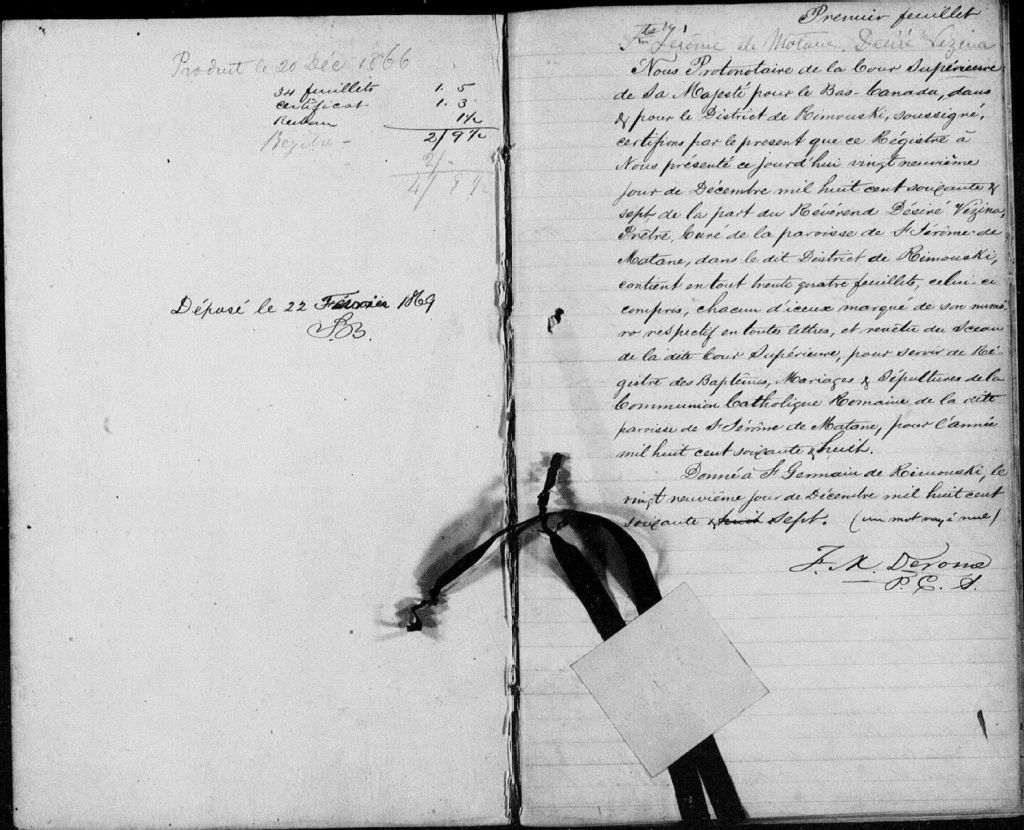 Produit le 20 Déc 1866
34 feuillets 1. 5
certificat 1. 3
Ruban 1½
2/9½
Registre -
2/-
4/ 9½
Déposé le 22 Février 1869
Premier feuillet
St Jérôme de Matane. Désiré Vézina
Nous Protonotaire de la Cour Supérieure
de Sa Majesté pour le Bas-Canada, dans
& pour le District de Rimouski, soussigné,
certifions par le present que ce Régistre à
Nous présenté ce jourd'hui vingt neuvième
jour de Décembre mil huit cent soixante &
sept, de la part du Révérend Désiré Vézina,
Prêtre, Curé de la paroisse de St Jérôme de
Matane, dans le dit District de Rimouski,
contient en tout trente quatre feuillets, celui-ci
compris, chacun d'iceux marqué de son numé
ro respectif en toutes lettres, et revêtu du Sceau
de la dite Cour Supérieure, pour servir de Ré-
gistre des Baptêmes, Mariages & Sépultures de la
Communion Catholique Romaine de la dite
paroisse de St Jérôme de Matane, pour l'année
mil huit cent soixante & huit.
Donné à St Germain de Rimouski, le
vingt neuvième jour de Décembre mil huit cent
soixante & huit sept. (un mot rayé nul)
F. M. Derome
P. C. S.